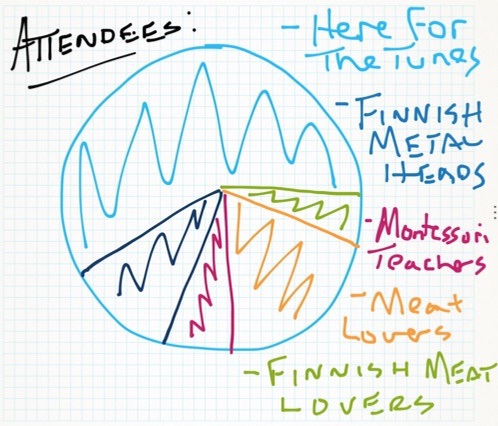 ATTENDEES:
- Here For
The Tunes
- FINNISH
METAL
HEADS
- Montessori
Teachers
- Meat
Lovers
- FINNISH MEAT
LOVERS